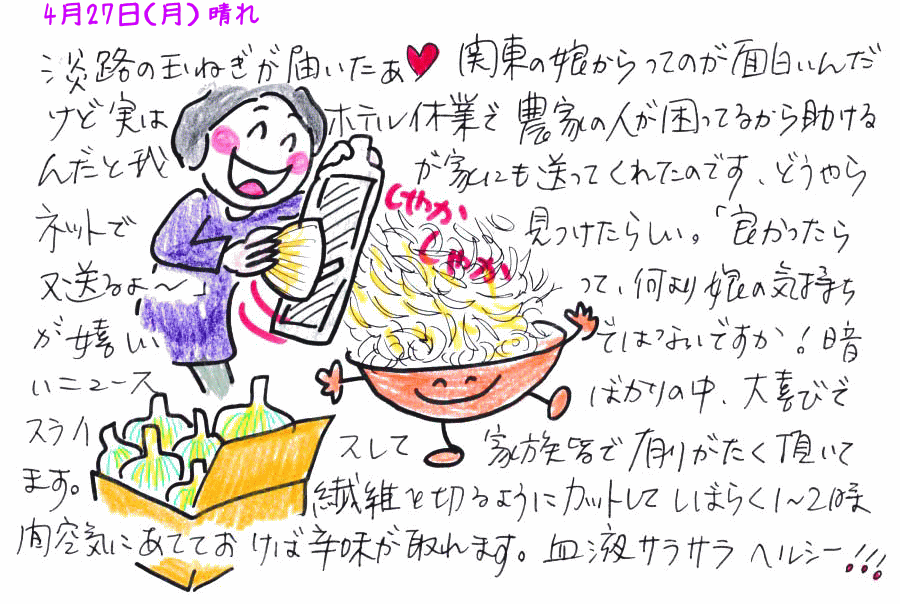 4月27日(月) 晴れ
淡路の玉ねぎが届いたぁ♥ 関東の娘からってのが面白いんだ
けど実は ホテル休業で農家の人が困ってるから助ける
んだと我 が家にも送ってくれたのです、どうやら
ネットで 見つけたらしい。「良かったら
又送るよ〜」 って、何より娘の気持ち
が嬉しい ではないですか!暗
いニュース ばかりの中、大喜びで
スライ スして 家族皆で有りがたく頂いて
ます。 繊維を切るようにカットしてしばらく1〜2時
間空気にあてておけば辛味が取れます。血液サラサラ ヘルシー!!!
しゃか
しゃか